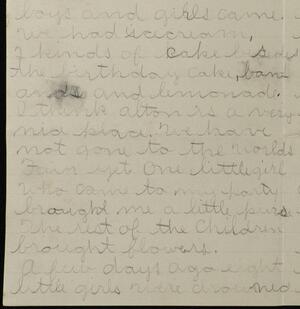 boys and girls came.
We had icecream,
2 kinds of cake besides
the birthday cake, ban
and lemonade.
I think alton is a very
nice place. We have
not gone to the Worlds
Fair yet. One little girl
who came to my party
brought me a little purse
The rest of the children
brought flowers.
A few days ago eight
little girls were drowned